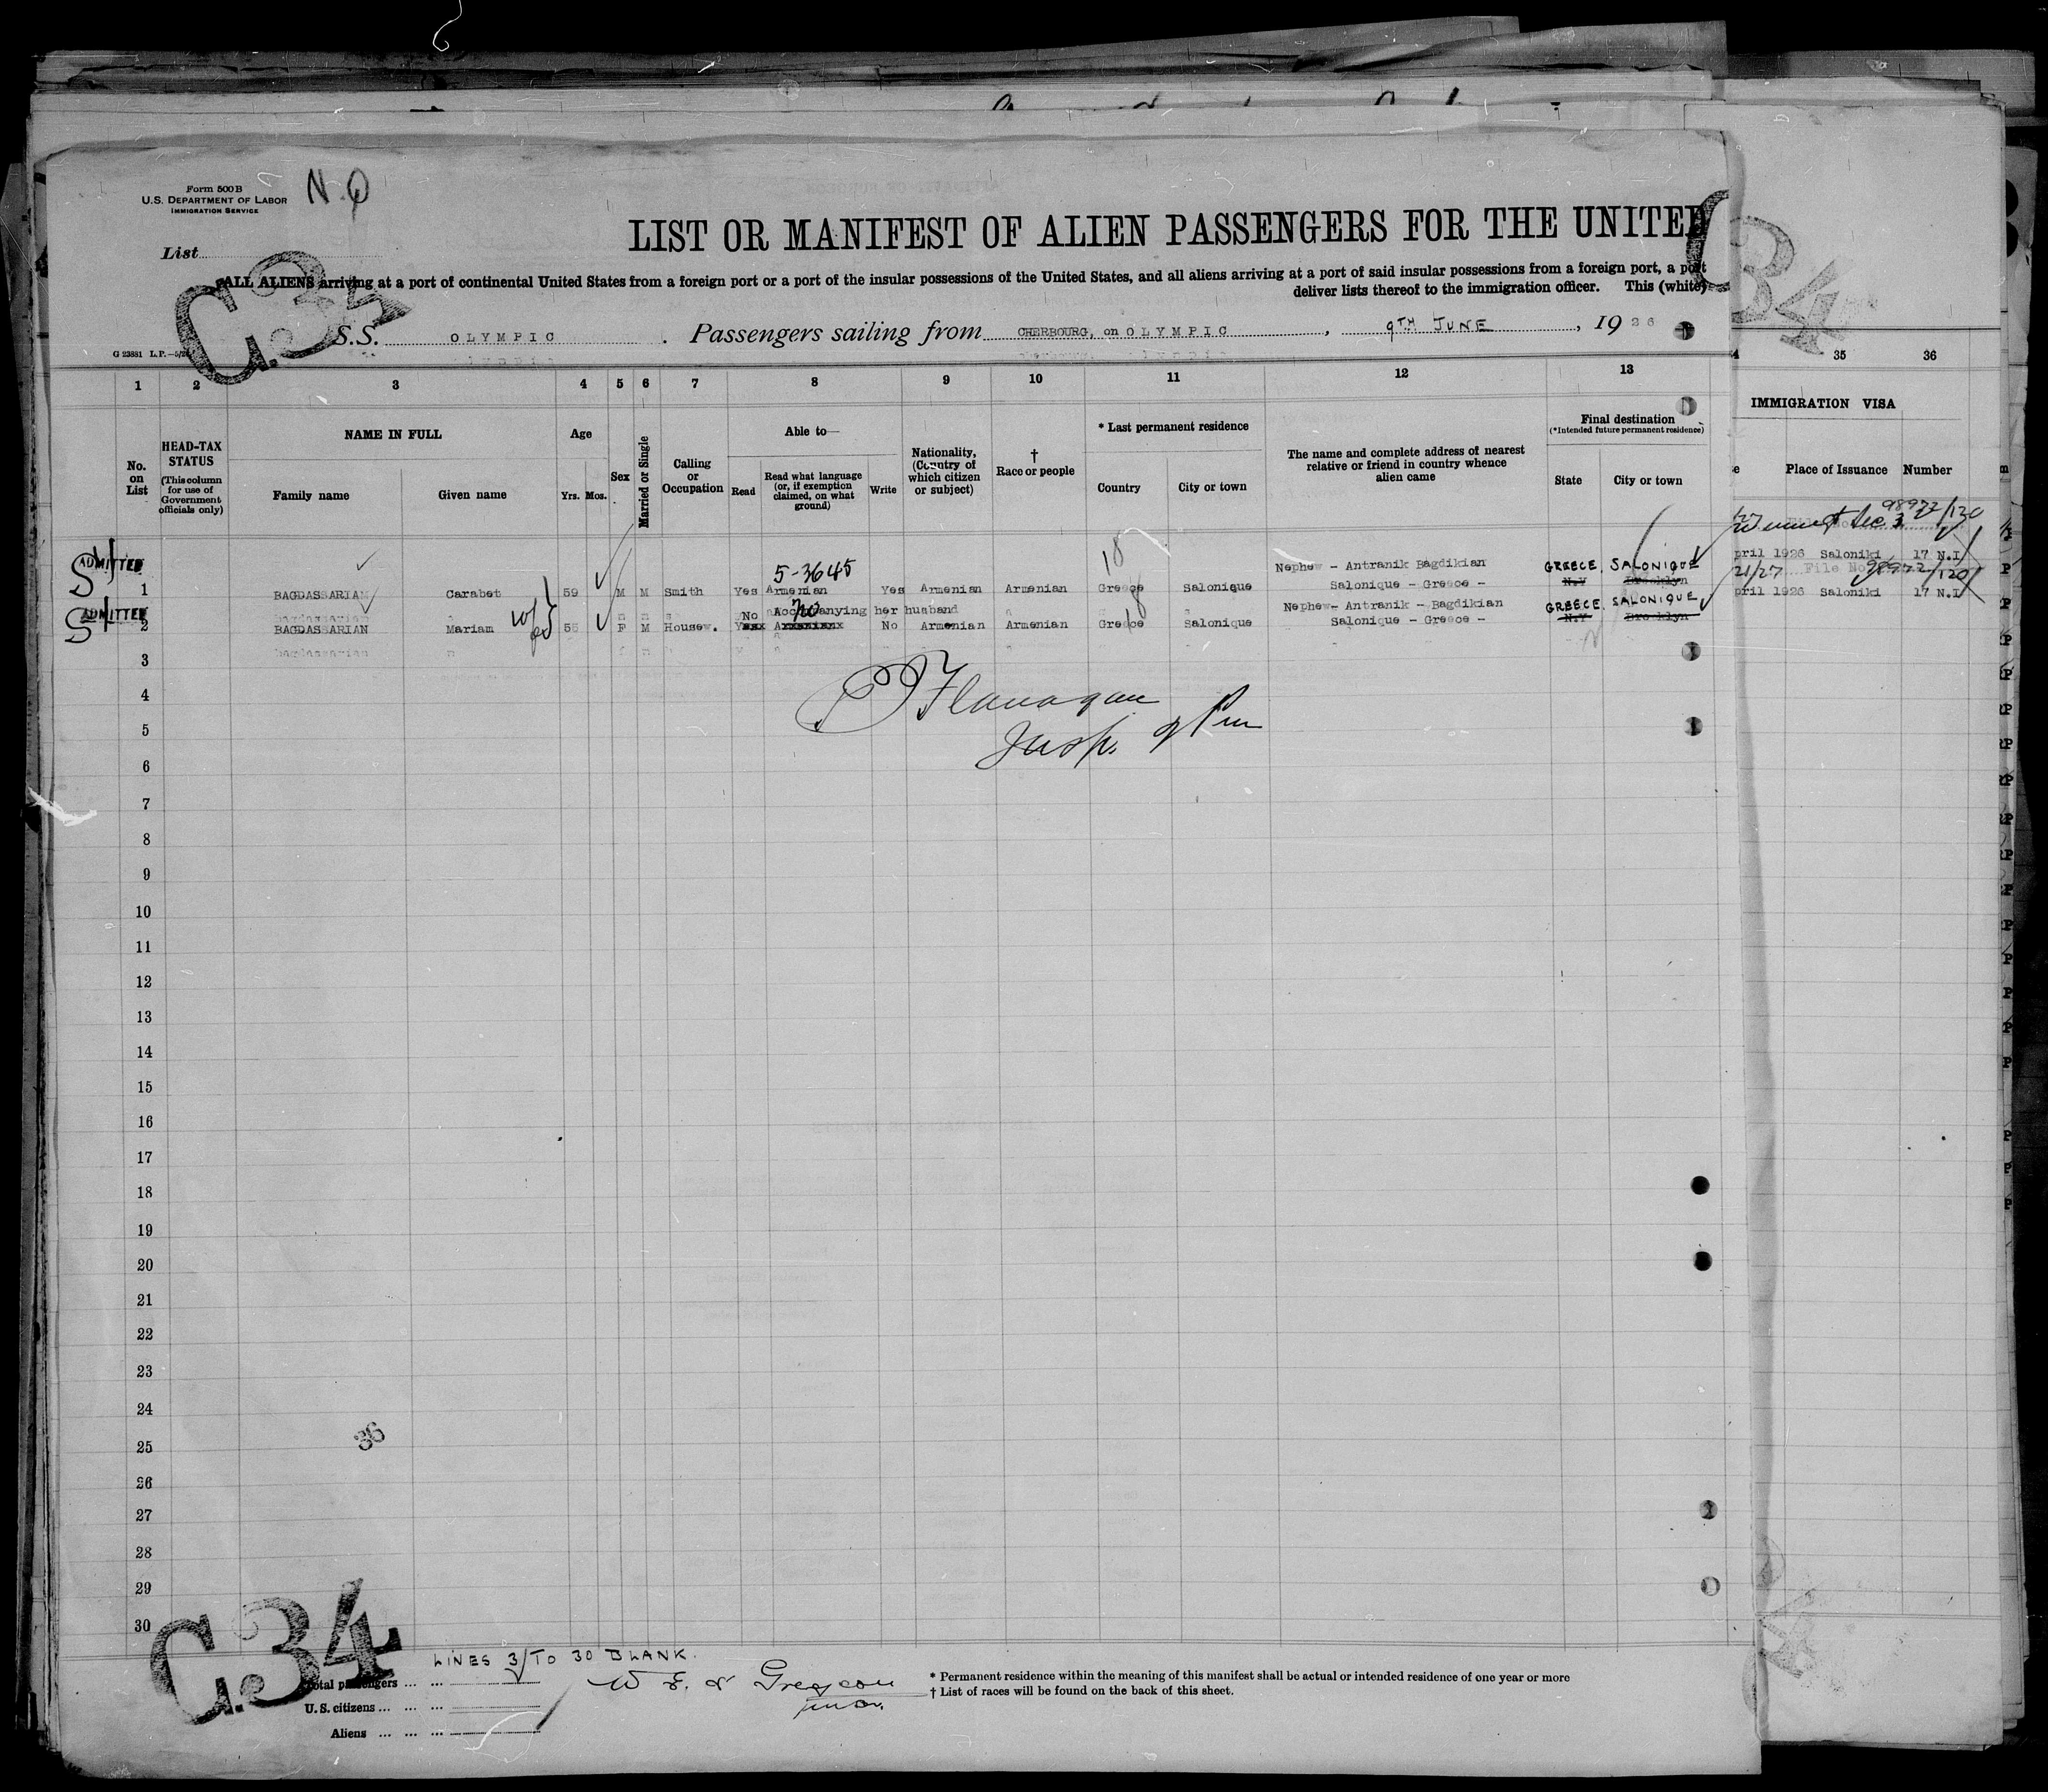 Form 500 B
U.S. DEPARTMENT OF LABOR
IMMIGRATION SERVICE
N.Q
List
C.34
34
LIST OR MANIFEST OF ALIEN PASSENGERS FOR THE UNITED
ALL ALIENS arriving at a port of continental United States from a foreign port or a port of the insular possessions of the United States, and all aliens arriving at a port of said insular possessions from a foreign port, a port
deliver lists thereof to the immigration officer. This (white)
S.S. OLYMPIC. Passengers sailing from CHERBOURG, on OLYMPIC, 9TH JUNE, 1926
G 23881 L.P.
1 2 3 4 5 6 7 8 9 10 11 12 13 35 36
No. on List
HEAD-TAX STATUS (This column for use of Government officials only)
NAME IN FULL
Family name Given name
Age
Yrs. Mos.
Sex
Married or Single
Calling or Occupation
Able to—
Read
Read what language (or, if exemption claimed, on what ground)
Write
Nationality, (Country of which citizen or subject)
† Race or people
* Last permanent residence
Country City or town
The name and complete address of nearest relative or friend in country whence alien came
Final destination
(*Intended future permanent residence)
State City or town
IMMIGRATION VISA
Place of Issuance Number
98972/120
ADMITTED 5-3645 Nephew - Antranik Bagdikian GREECE. SALONIQUE pril 1926 Saloniki 17 N.I
1 BAGDASSARIAN Carabet 59 M M Smith Yes Armenian Yes Armenian Armenian Greece Salonique Salonique - Greece - N.Y Brooklyn 21/27 File No 98972/120
ADMITTED No Accompanying her husband Nephew - Antranik - Bagdikian GREECE. SALONIQUE pril 1926 Saloniki 17 N.I
2 BAGDASSARIAN Mariam 55 F M Housew. Yes Armenian No Armenian Armenian Greece Salonique Salonique - Greece - N.Y Brooklyn
3 bagdassarian
4
P Flanagan
5
Insp.
6
7
8
9
10
11
12
13
14
15
16
17
18
19
20
21
22
23
24
25
36
26
27
28
29
30
C.34
LINES 3 TO 30 BLANK.
Total passengers ... ...
U.S. citizens ... ... ...
Aliens ... ... ...
* Permanent residence within the meaning of this manifest shall be actual or intended residence of one year or more
† List of races will be found on the back of this sheet.